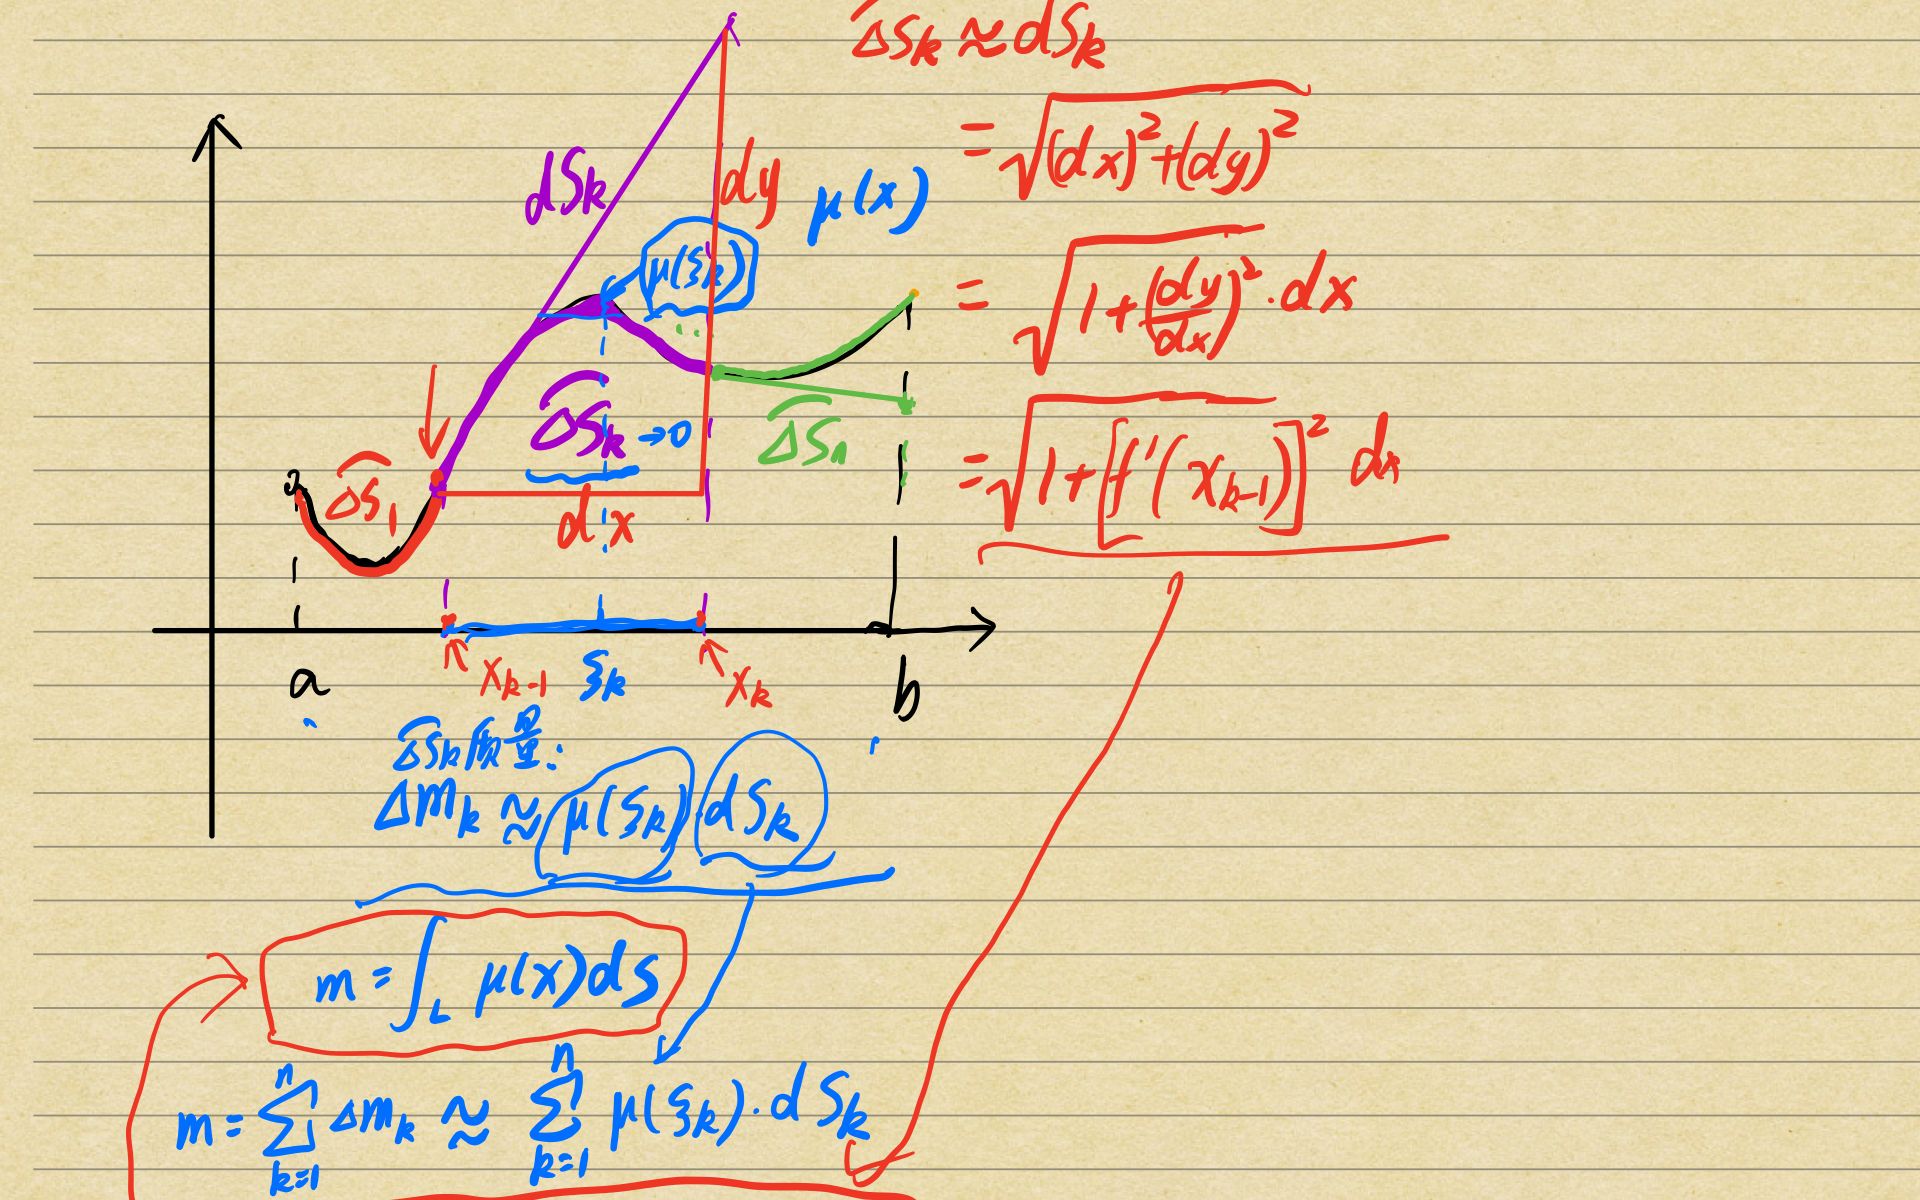 ⌒ΔSₖ ≈ dSₖ
= √((dx)² + (dy)²)
= √(1 + (dy/dx)²) · dx
= √(1 + [f′(xₖ₋₁)]²) dx
dSₖ
dy
μ(x)
μ(ξₖ)
⌒ΔSₖ → 0
⌒ΔSₙ
⌒ΔS₁
dx
a
xₖ₋₁
ξₖ
xₖ
b
⌒ΔSₖ质量:
Δmₖ ≈ μ(ξₖ) · dSₖ
m = ∫_L μ(x)ds
m = ∑ₖ₌₁ⁿ Δmₖ ≈ ∑ₖ₌₁ⁿ μ(ξₖ) · dSₖ